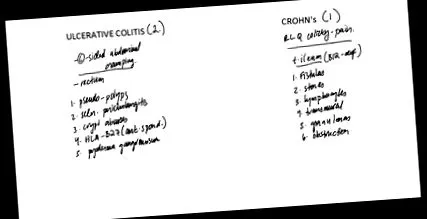 ULCERATIVE COLITIS (2)
L-sided abdominal
cramping
- rectum
1. pseudo-polyps
2. scln. pericholangitis
3. crypt abscess
4. HLA-B27 (ank. spond.)
5. pyoderma gangrenosum
CROHN's (1)
RLQ colicky-pain.
t. ileum (B12-def)
1. fistulas
2. stones
3. lymphocytes
4. transmural
5. granulomas
6. obstruction